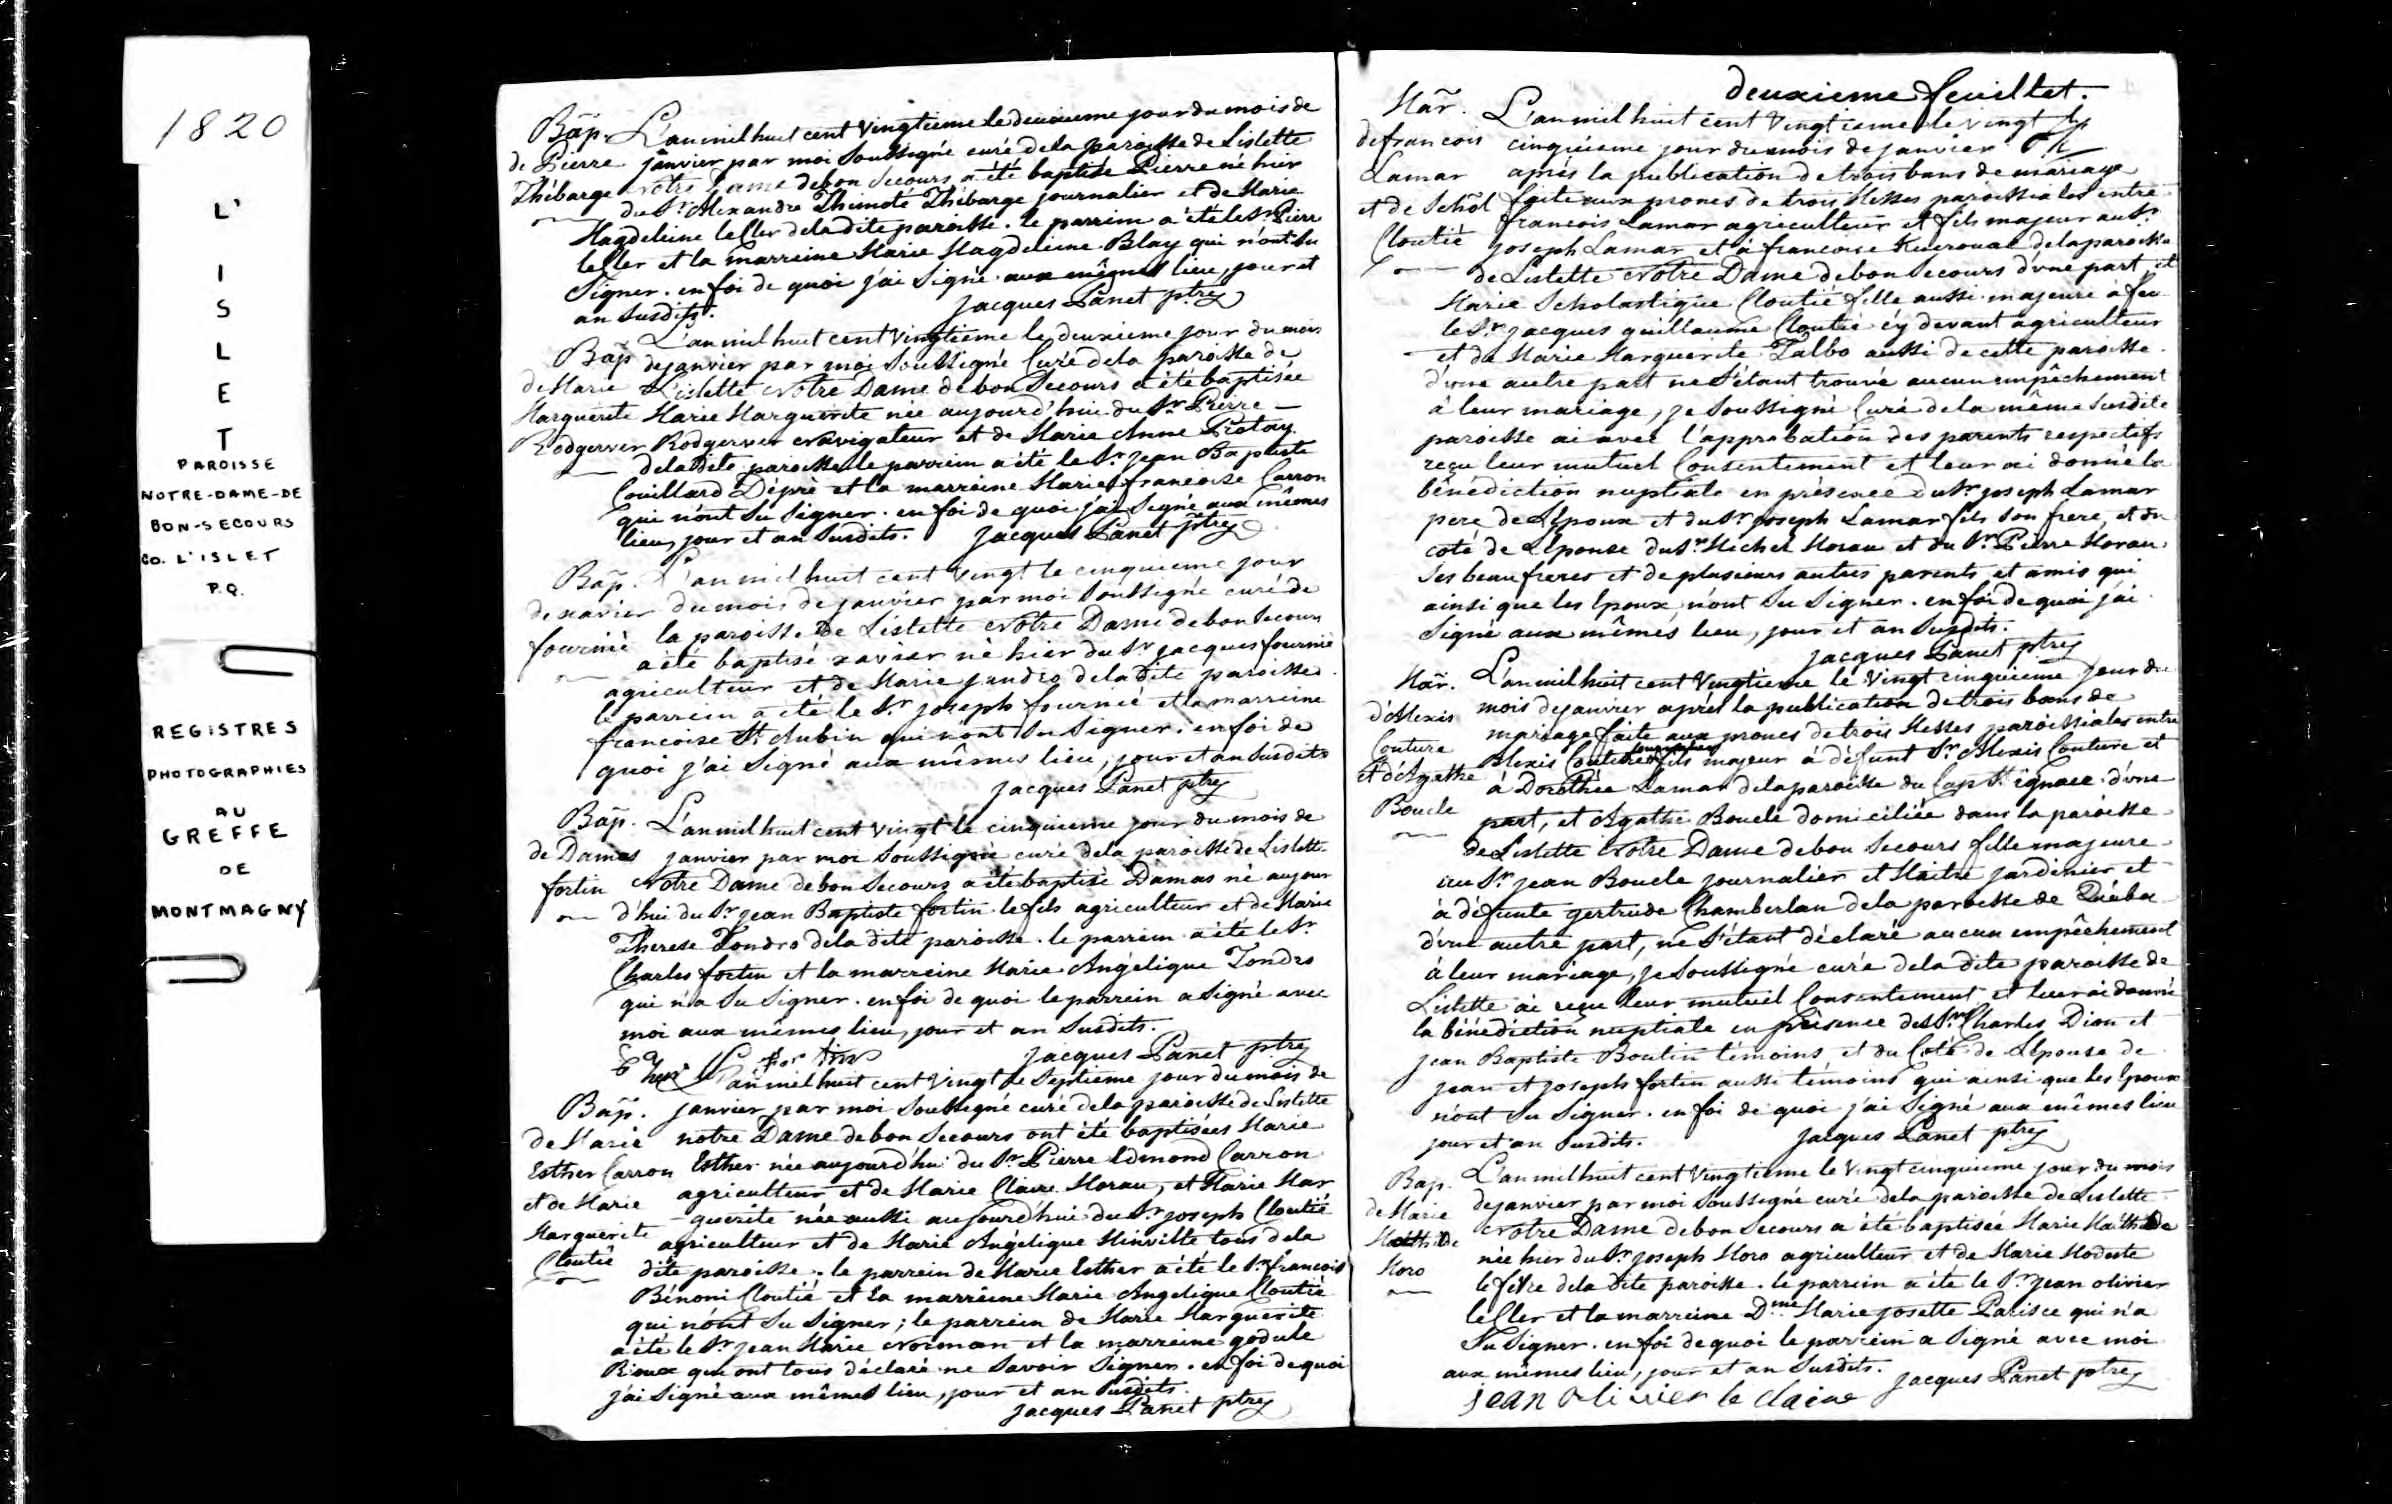 1820
L'
I
S
L
E
T
PAROISSE
NOTRE-DAME-DE
BON-SECOURS
CO. L'ISLET
P.Q.
REGISTRES
PHOTOGRAPHIES
AU
GREFFE
DE
MONTMAGNY
Bãp. L'an mil huit cent vingtieme le deuxieme jour du mois de
de Pierre janvier par moi soussigné curé de la paroisse de Lislette
Thibarge Notre Dame de bon secours a été baptisé Pierre né hier
du Sr Alexandre Thimoté Thibarge journalier et de Marie
Magdeleine leCler de la dite paroisse. le parrein a été le Sr Pierre
leCler et la marreine Marie Magdeleine Blay qui n'ont su
signer. en foi de quoi j'ai signé aux mêmes lieu, jour et
an susdits. Jacques Panet ptre
L'an mil huit cent vingtieme le deuxieme jour du mois
Bãp de janvier par moi soussigné Curé de la paroisse de
de Marie L'islette Notre Dame de bon Secours a été baptisée
Marguerite Marie Marguerite née aujourd'hui du Sr Pierre
Rodgerver Rodgerver Navigateur et de Marie Anne
de la dite paroisse le parrein a été le Sr Jean Baptiste
Couillard Dépré et la marreine Marie francoise Carron
qui n'ont su signer. en foi de quoi j'ai signé aux mêmes
lieu, jour et an susdits. Jacques Panet ptre
Bãp. L'an mil huit cent vingt le cinquieme jour
de xavier du mois de janvier par moi soussigné curé de
fournié la paroisse de Lislette Notre Dame de bon secours
a été baptisé xavier né hier du Sr jacques fournié
agriculteur et de Marie jendro de la dite paroisse.
le parrein a été le Sr joseph fournié et la marreine
francoise St Aubin qui n'ont su signer. en foi de
quoi j'ai signé aux mêmes lieu, jour et an susdits
Jacques Panet ptre
Bãp. L'an mil huit cent vingt le cinquieme jour du mois de
de Damas janvier par moi soussigné curé de la paroisse de Lislette
fortin Notre Dame de bon secours a été baptisé Damas né aujour
d'hui du Sr jean Baptiste fortin le fils agriculteur et de Marie
Therese Tondro de la dite paroisse. le parrein a été le Sr
Charles fortin et la marreine Marie Angélique Tondro
qui n'a su signer. en foi de quoi le parrein a signé avec
moi aux mêmes lieu, jour et an susdits.
Jacques Panet ptre
L'an mil huit cent vingt le septieme jour du mois de
Bãp. janvier par moi soussigné curé de la paroisse de Lislette
de Marie notre Dame de bon secours ont été baptisées Marie
Esther Carron Esther née aujourd'hui du Sr Pierre Edmond Carron
et de Marie agriculteur et de Marie Claire Morau, et Marie Mar
Marguerite -guerite née aussi aujourd'hui du Sr joseph Cloutié
Cloutié agriculteur et de Marie Angélique Minville tous de la
dite paroisse. le parrein de Marie Esther a été le Sr francois
Bénoni Cloutié et la marreine Marie Angelique Cloutié
qui n'ont su signer; le parrein de Marie Marguerite
a été le Sr jean Marie Norman et la marreine godule
Rioux qui ont tous déclaré ne savoir signer. en foi de quoi
j'ai signé aux mêmes lieu, jour et an susdits.
Jacques Panet ptre
deuxieme feuillet.
Mar. L'an mil huit cent vingtieme le vingt
de francois cinquieme jour du mois de janvier
Lamar après la publication de trois bans de mariage
et de Schol faite aux prones de trois Messes paroissiales entre
Cloutié francois Lamar agriculteur et fils majeur au Sr
joseph Lamar et à francoise Kuerouac de la paroisse
de Lislette Notre Dame de bon secours d'une part et
Marie Scholastique Cloutié fille aussi majeure à feu
le Sr jacques guillaume Cloutié cy devant agriculteur
et de Marie Marguerite Talbo aussi de cette paroisse
d'une autre part ne s'étant trouvé aucun empêchement
à leur mariage, je soussigné Curé de la même susdite
paroisse ai avec l'approbation des parents respectifs
reçu leur mutuel Consentement et leur ai donné la
bénédiction nuptiale en présence du Sr joseph Lamar
pere de L'époux et du Sr joseph Lamar fils son frere, et du
coté de L'épouse du Sr Michel Morau et du Sr Pierre Morau
ses beaufreres et de plusieurs autres parents et amis qui
ainsi que les Epoux n'ont su signer. en foi de quoi j'ai
signé aux mêmes lieu, jour et an susdits.
Jacques Panet ptre
Mar. L'an mil huit cent vingtieme le vingt cinquieme jour du
d'Alexis mois de janvier après la publication de trois bans de
Couture mariage faite aux prones de trois Messes paroissiales entre
et d'Agathe Alexis Couture journalier fils majeur à défunt Sr Alexis Couture et
Boucle à Dorothée Lamar de la paroisse du Cap St ignace d'une
part, et Agathe Boucle domiciliée dans la paroisse
de Lislette Notre Dame de bon secours fille majeure
au Sr jean Boucle journalier et Maitre jardinier et
à défunte gertrude Chamberlan de la paroisse de Québec
d'une autre part, ne s'étant déclaré aucun empêchement
à leur mariage, je soussigné curé de la dite paroisse de
Lislette ai reçu leur mutuel Consentement et leur ai donné
la bénédiction nuptiale en présence des Srs Charles Dion et
jean Baptiste Boulin témoins et du Coté de L'épouse de
jean et joseph fortin aussi témoins qui ainsi que les Epoux
n'ont su signer. en foi de quoi j'ai signé aux mêmes lieu
jour et an susdits. Jacques Panet ptre
Bap. L'an mil huit cent vingtieme le vingt cinquieme jour du mois
de Marie de janvier par moi soussigné curé de la paroisse de Lislette
Mathilde Notre Dame de bon secours a été baptisée Marie Mathilde
Moro née hier du Sr joseph Moro agriculteur et de Marie Modeste
lefevre de la dite paroisse. le parrein a été le Sr jean olivier
leCler et la marreine Dme Marie josette Parisee qui n'a
su signer. en foi de quoi le parrein a signé avec moi
aux mêmes lieu, jour et an susdits. Jacques Panet ptre
jean olivier le claire